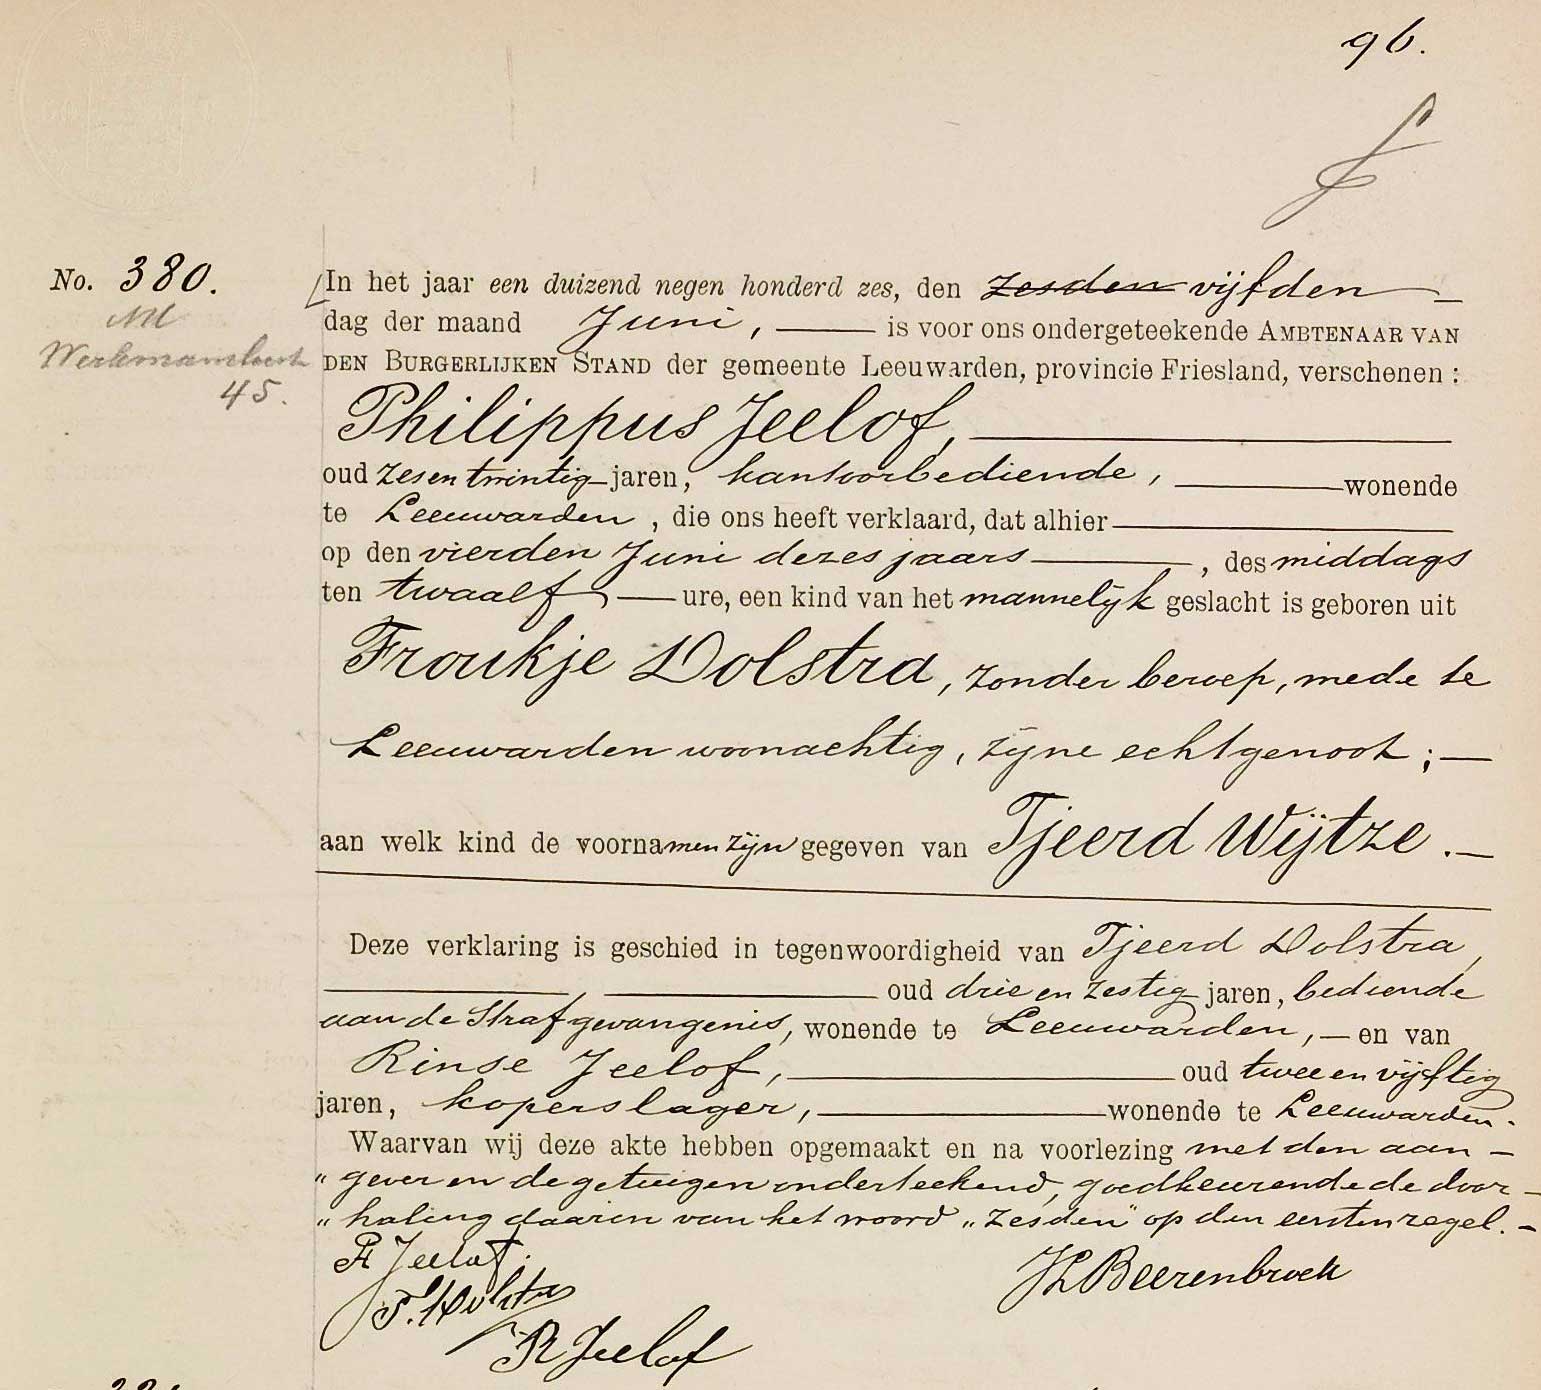 96.
No. 380.
Werkmanslust
45.
In het jaar een duizend negen honderd zes, den zesden vijfden
dag der maand Juni, is voor ons ondergeteekende AMBTENAAR VAN
DEN BURGERLIJKEN STAND der gemeente Leeuwarden, provincie Friesland, verschenen:
Philippus Jeelof,
oud zesentwintig jaren, kantoorbediende, wonende
te Leeuwarden, die ons heeft verklaard, dat alhier
op den vierden Juni dezes jaars, des middags
ten twaalf ure, een kind van het mannelijk geslacht is geboren uit
Froukje Dolstra, zonder beroep, mede te
Leeuwarden woonachtig, zijne echtgenoot;
aan welk kind de voornamen zijn gegeven van Tjeerd Wijtze.
Deze verklaring is geschied in tegenwoordigheid van Tjeerd Dolstra,
, oud drie en zestig jaren, bediende
aan de Strafgevangenis, wonende te Leeuwarden, en van
Rinse Jeelof, oud twee en vijftig
jaren, koperslager, wonende te Leeuwarden.
Waarvan wij deze akte hebben opgemaakt en na voorlezing met den aan-
"gever en de getuigen onderteekend, goedkeurende de door-
"haling daarin van het woord "zesden" op den eersten regel.
Ph Jeelof.
T. Dolstra
R Jeelof
JL Beerenbroek